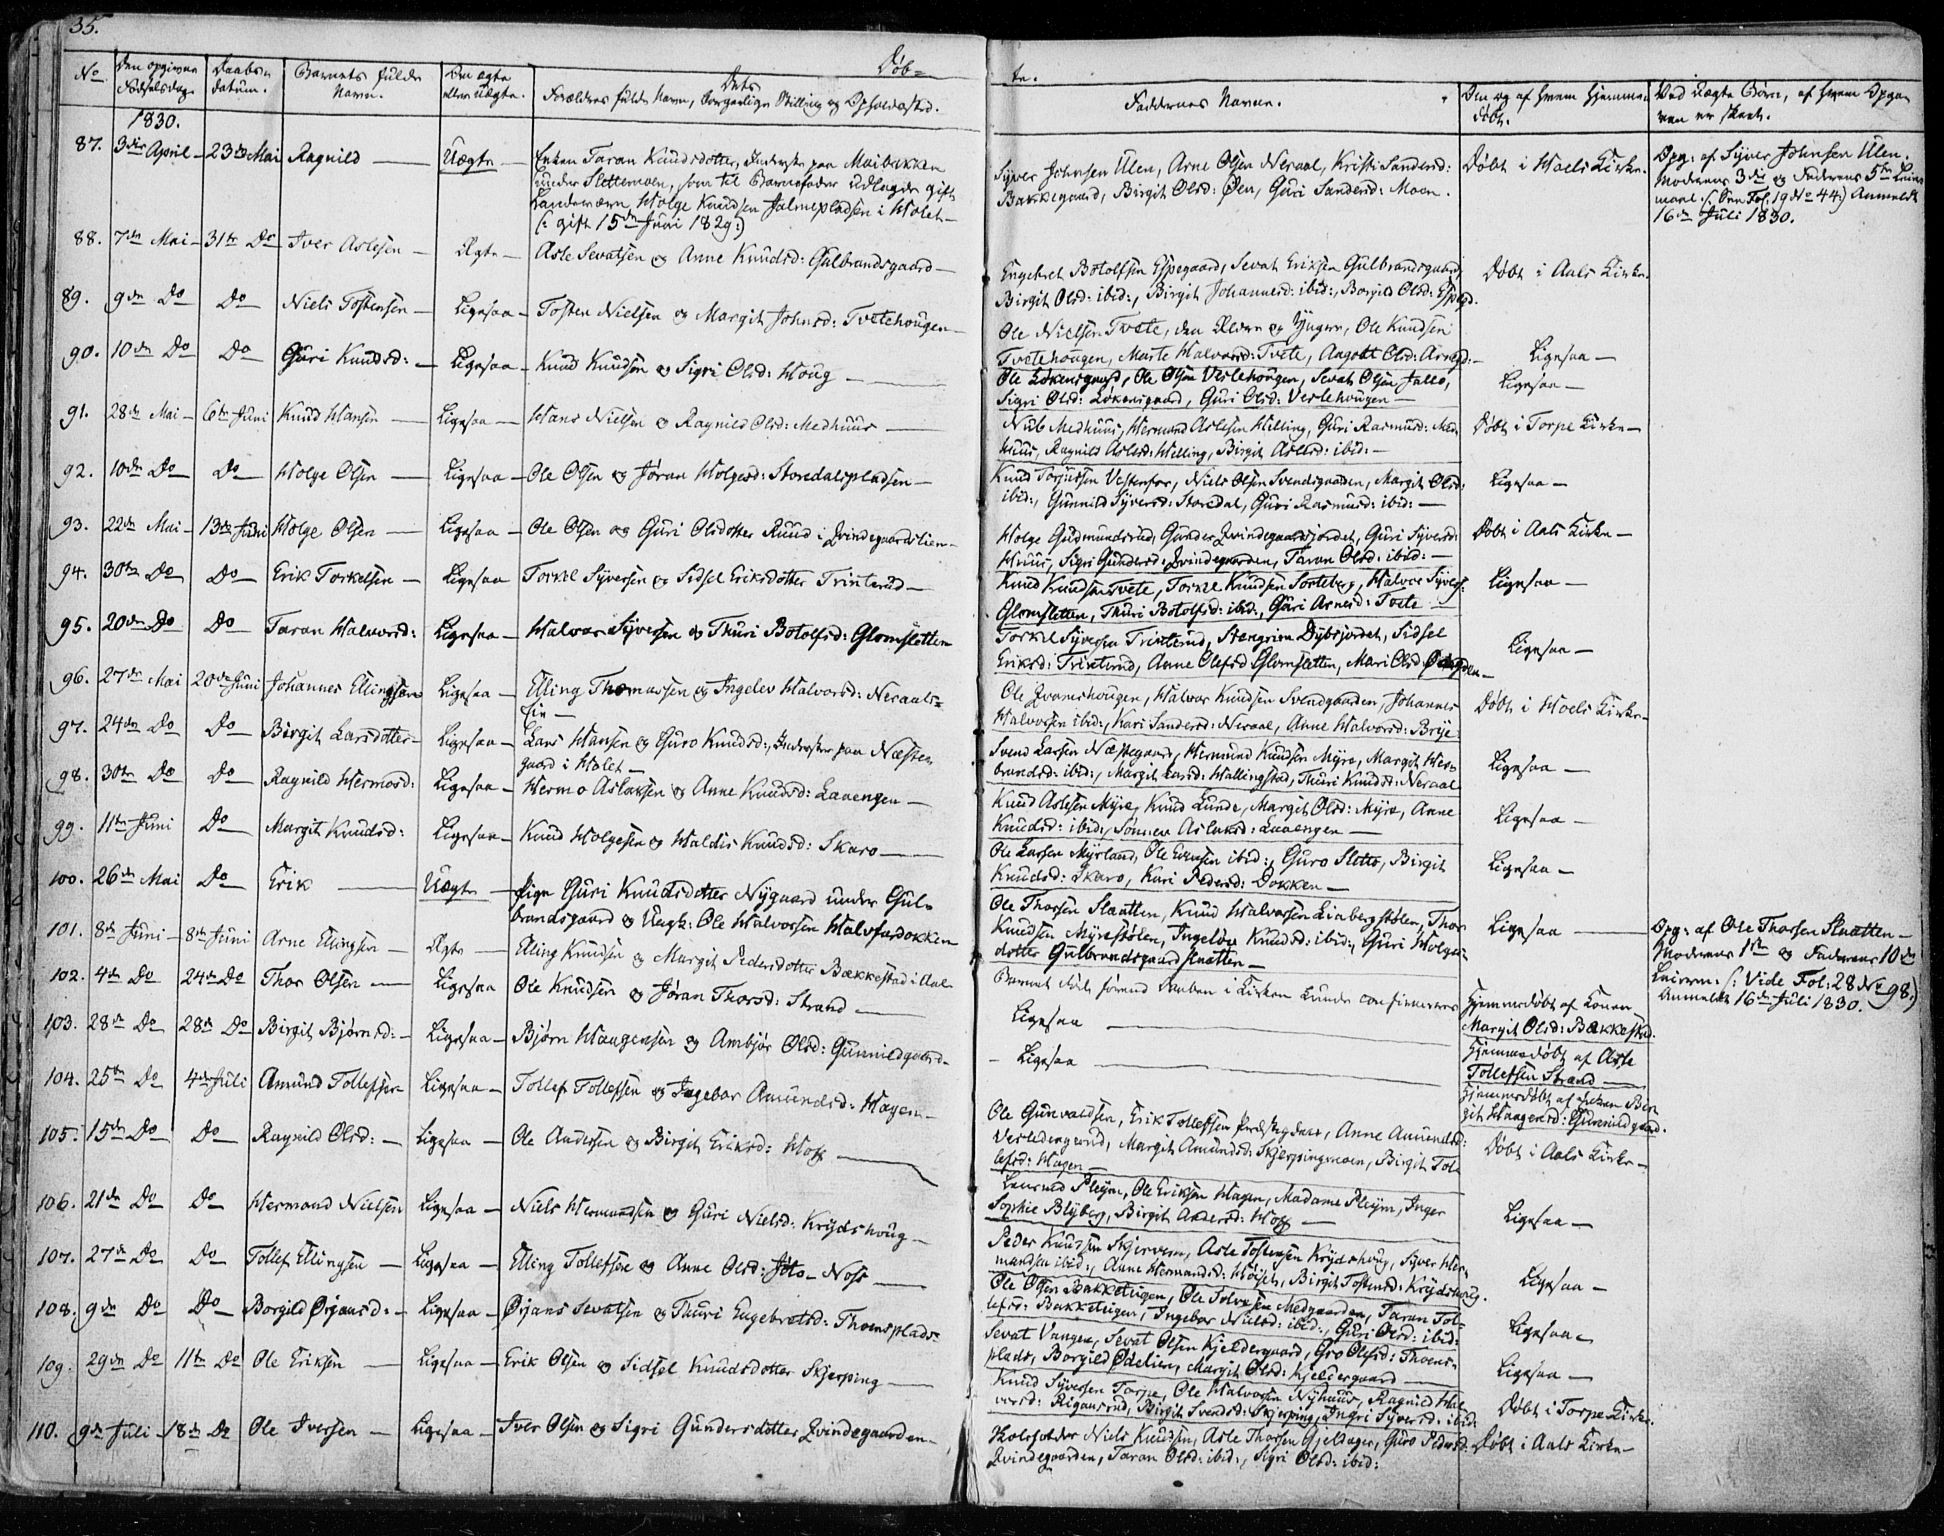 35.
Døb=
te.
No
Den opgivne Fødselsdag.
Daabens Datum.
Barnets fulde Navn.
Om ægte eller Uægte.
Dets
Forældres fulde Navn, borgerlige Stilling og Opholdssted.
Faddernes Navne.
Om og af hvem hjemme døbt.
Ved Uægte Børn, af hvem Opga-
ven er skeet.
1830.
87. 3die April – 23de Mai Ragnild — Uægte – Enken Taran Knudsdotter, Inderste paa Maibakken
under Slettemoen, som til Barnefader udlagde gift
Landeværn, Holge Knudsen Jalmepladsen i Holet –
(: gift 15de Juni 1829:)
Syver Johnsen Ulen, Arne Olsen Neraal, Kristi Sandersd:
Bakkegaard, Birgit Olsd: Øen, Guri Sandersd: Moen.
Døbt i Hoels Kirke.
Opg: af Syver Johnsen Ulen.
Moderens 3die og Faderens 5te Leier-
maal (: See Fol: 19 No 44:) Anmeldt
16de Juli 1830.
88. 7de Mai – 31te Do Iver Aslesen – Ægte – Asle Sevatsen og Anne Knudsd: Gulbrandsgaard –
Engebret Botolfsen Espegaard, Sevat Eriksen Gulbrandsgaard,
Birgit Olsd: ibid:, Birgit Johannesd: ibid:, Borgild Olsd: Espegd.
Døbt i Aals Kirke.
89. 9de Do Do Niels Tostensen – Ligesaa – Tosten Nielsen og Margit Johnsd: Tvetehougen –
Ole Nielsen Tvete, den Ældre og Yngere, Ole Knudsen
Tvetehougen, Marte Halvorsd: Tvete, Aagodt Olsd: Arnegd: –
Ligesaa –
90. 10de Do Do Guri Knudsd: – Ligesaa – Knud Knudsen og Sigri Olsd: Houg –
Ole Løkensgaard, Ole Olsen Veslehougen, Sevat Olsen Jallo,
Sigri Olsd: Løkensgaard, Guri Olsd: Veslehougen –
Ligesaa –
91. 28de Mai – 6te Juni Knud Hansen – Ligesaa – Hans Nielsen og Ragnild Olsd: Medhuus –
Nub Medhuus, Hermand Aslesen Hilling, Guri Rasmusd: Med-
huus, Ragnild Aslesd: Hilling, Birgit Aslesd: ibid: –
Døbt i Torpe Kirke –
92. 10de Do Do Holge Olsen – Ligesaa – Ole Olsen og Jøran Holgesd: Storedalspladsen –
Knud Torjusen Vestenfor, Niels Olsen Svendsgaarden, Margit Olsd:
ibid:, Gunnild Syversd: Storedal, Guri Rasmusd: ibid: –
Ligesaa –
93. 22de Mai – 13de Juni Holge Olsen – Ligesaa – Ole Olsen og Guri Olsdotter Ruud i Qvindegaardslien –
Holge Gudmundsrud, Gunder Qvindegaardsjordet, Guri Syversd:
Huus, Sigri Gundersd: Qvindegaarden, Taran Olsd: ibid: –
Døbt i Aals Kirke –
94. 30te Do Do Erik Torkelsen – Ligesaa Torkel Syversen og Sidsel Eriksdotter Trinterud –
Knud Knudsen Tvete, Torkel Knudsen Sorteberg, Halvor Syvers:
Glomsletten, Thuri Botolfsd: ibid:, Guri Arnesd: Tvete –
Ligesaa –
95. 20de Do Do Taran Halvorsd: Ligesaa – Halvor Syversen og Thuri Botolfsd: Glomsletten
Torkel Syversen Trinterud, Stengrim Dybsjordet, Sidsel
Eriksd: Trinterud, Anne Olefsd Glomsletten, Mari Olsd
Ligesaa –
96. 27de Mai 20de Juni Johannes Ellingsen Ligesaa – Elling Thomassen og Ingelev Halvorsd: Neraals-
lie –
Ole Qvamshougen, Halvor Knudsen Svendgaarden, Johannes
Halvorsen ibid:, Kari Sandersd: Neraal, Anne Halvorsd: Brye
Døbt i Hoels Kirke –
97. 24de Do Do Birgit Larsdotter – Ligesaa – Lars Hansen og Guro Knudsd:, Inderster paa Næste-
gaard i Holet –
Svend Larsen Næstegaard, Hermund Knudsen Myre, Margit Her-
brandsd: ibid:, Margit Larsd: Hallingstad, Thuri Knudsd: Neraal
Ligesaa –
98. 30te Do Do Ragnild Hermosd: Ligesaa – Hermo Aslaksen og Anne Knudsd: Laaengen –
Knud Aslesen Myre, Knud Lunde, Margit Olsd: Myre, Anne
Knudsd: ibid:, Sønnev Aslaksd: Laaengen –
Ligesaa –
99. 11te Juni Do Margit Knudsd: Ligesaa – Knud Holgesen og Haldis Knudsd: Skaro –
Ole Larsen Myrland, Ole Evensen ibid:, Guro Sletto, Birgit
Knudsd: Skaro, Kari Pedersd: Dokken –
Ligesaa –
100. 26de Mai Do Erik – Uægte – Pige Guri Knudsdotter Nygaard under Gul-
brandsgaard og Ungk: Ole Halvorsen Halvfardokken
Ole Thorsen Slaatten, Knud Halvorsen Liabergstølen, Thor
Knudsen Myrestølen, Ingeløv Knudsd: ibid:, Guri Holges-
dotter Gulbrandsgaardslaatten –
Ligesaa –
Opg: af Ole Thorsen Slaatten –
Moderens 1ste og Faderens 10de
Leierm: (: Vide Fol: 28 No 98.)
Anmeldt 16de Juli 1830.
101. 8de Juni – 8de Juni Arne Ellingsen – Ægte – Elling Knudsen og Margit Pedersdotter Bækkestad i Aal –
Barnet døde førend Daaben i Kirken kunde confirmeres
Hjemmedøbt af Konen
Margit Olsd: Bækkestad.
102. 4de Do 24de Do Thor Olsen – Ligesaa Ole Knudsen og Jøran Thorsd: Strand –
Ligesaa –
Hjemmedøbt af Asle
Tollefsen Strand –
103. 28de Do 28de Do Birgit Bjørnsd: – Ligesaa – Bjørn Haagensen og Ambjør Olsd: Gunnildgaard –
– Ligesaa –
Hjemmedøbt af Enken Bir-
git Haagensd: Gunnildgaard.
104. 25de Do 4de Juli Amund Tollefsen Ligesaa – Tollef Tollefsen og Ingebor Amundsd: Hagen –
Ole Gunvaldsen, Erik Tollefsen Præstegaard, Anne Amundsd:
Vesledengerud, Margit Amundsd: Skjerpingmoen, Birgit Tol-
lefsd: Hagen –
Døbt i Aals Kirke –
105. 15de Do Do Ragnild Olsd: – Ligesaa – Ole Andersen og Birgit Eriksd: Hoff –
Lensmd Pleym, Ole Eriksen Hagen, Madame Pleym, Inger
Sophie Blyberg, Birgit Andersd: Hoff –
Ligesaa –
106. 21de Do Do Hermand Nielsen Ligesaa – Niels Hermandsen og Guri Nielsd: Krydshoug –
Peder Knudsen Skjerven, Asle Tostensen Krydshoug, Syver Her-
mandsen ibid:, Anne Hermandsd: Høyset, Birgit Tostensd: Krydshoug.
Ligesaa –
107. 27de Do Do Tollef Ellingsen – Ligesaa – Elling Tollefsen og Anne Olsd: Jøto-Noss –
Ole Olsen Bakketeigen, Ole Tolvsen Medgaarden, Taran Tol-
lefsd: Bakketeigen, Ingebor Nielsd: ibid:, Guri Olsd: ibid:
Ligesaa –
108. 9de Do Do Borgild Ørjansd: – Ligesaa – Ørjans Sevatsen og Thuri Engebretsd: Thoensplads-
Sevat Vangen, Sevat Olsen Kjeldergaard, Gro Olefsd: Thoens-
plads, Borgild Ødelien, Margit Olsd: Kjeldergaard –
Ligesaa –
109. 29de Do 11te Do Ole Eriksen – Ligesaa – Erik Olsen og Sidsel Knudsdotter Skjerping –
Knud Syversen Torpe, Ole Halvorsen Nyhuus, Ragnild Hal-
vorsd: Rigansrud, Birgit Svendsd: Skjerping, Ingri Syversd: ibid:
Døbt i Torpe Kirke.
110. 9de Juli – 18de Do Ole Iversen – Ligesaa – Iver Olsen og Sigri Gundersdotter Qvindegaarden –
Skoleholder Niels Knudsen, Asle Thorsen Gjeldager, Guro Pedersd:
Qvindegaarden, Taran Olsd: ibid:, Sigri Olsd: ibid:
Døbt i Aals Kirke –